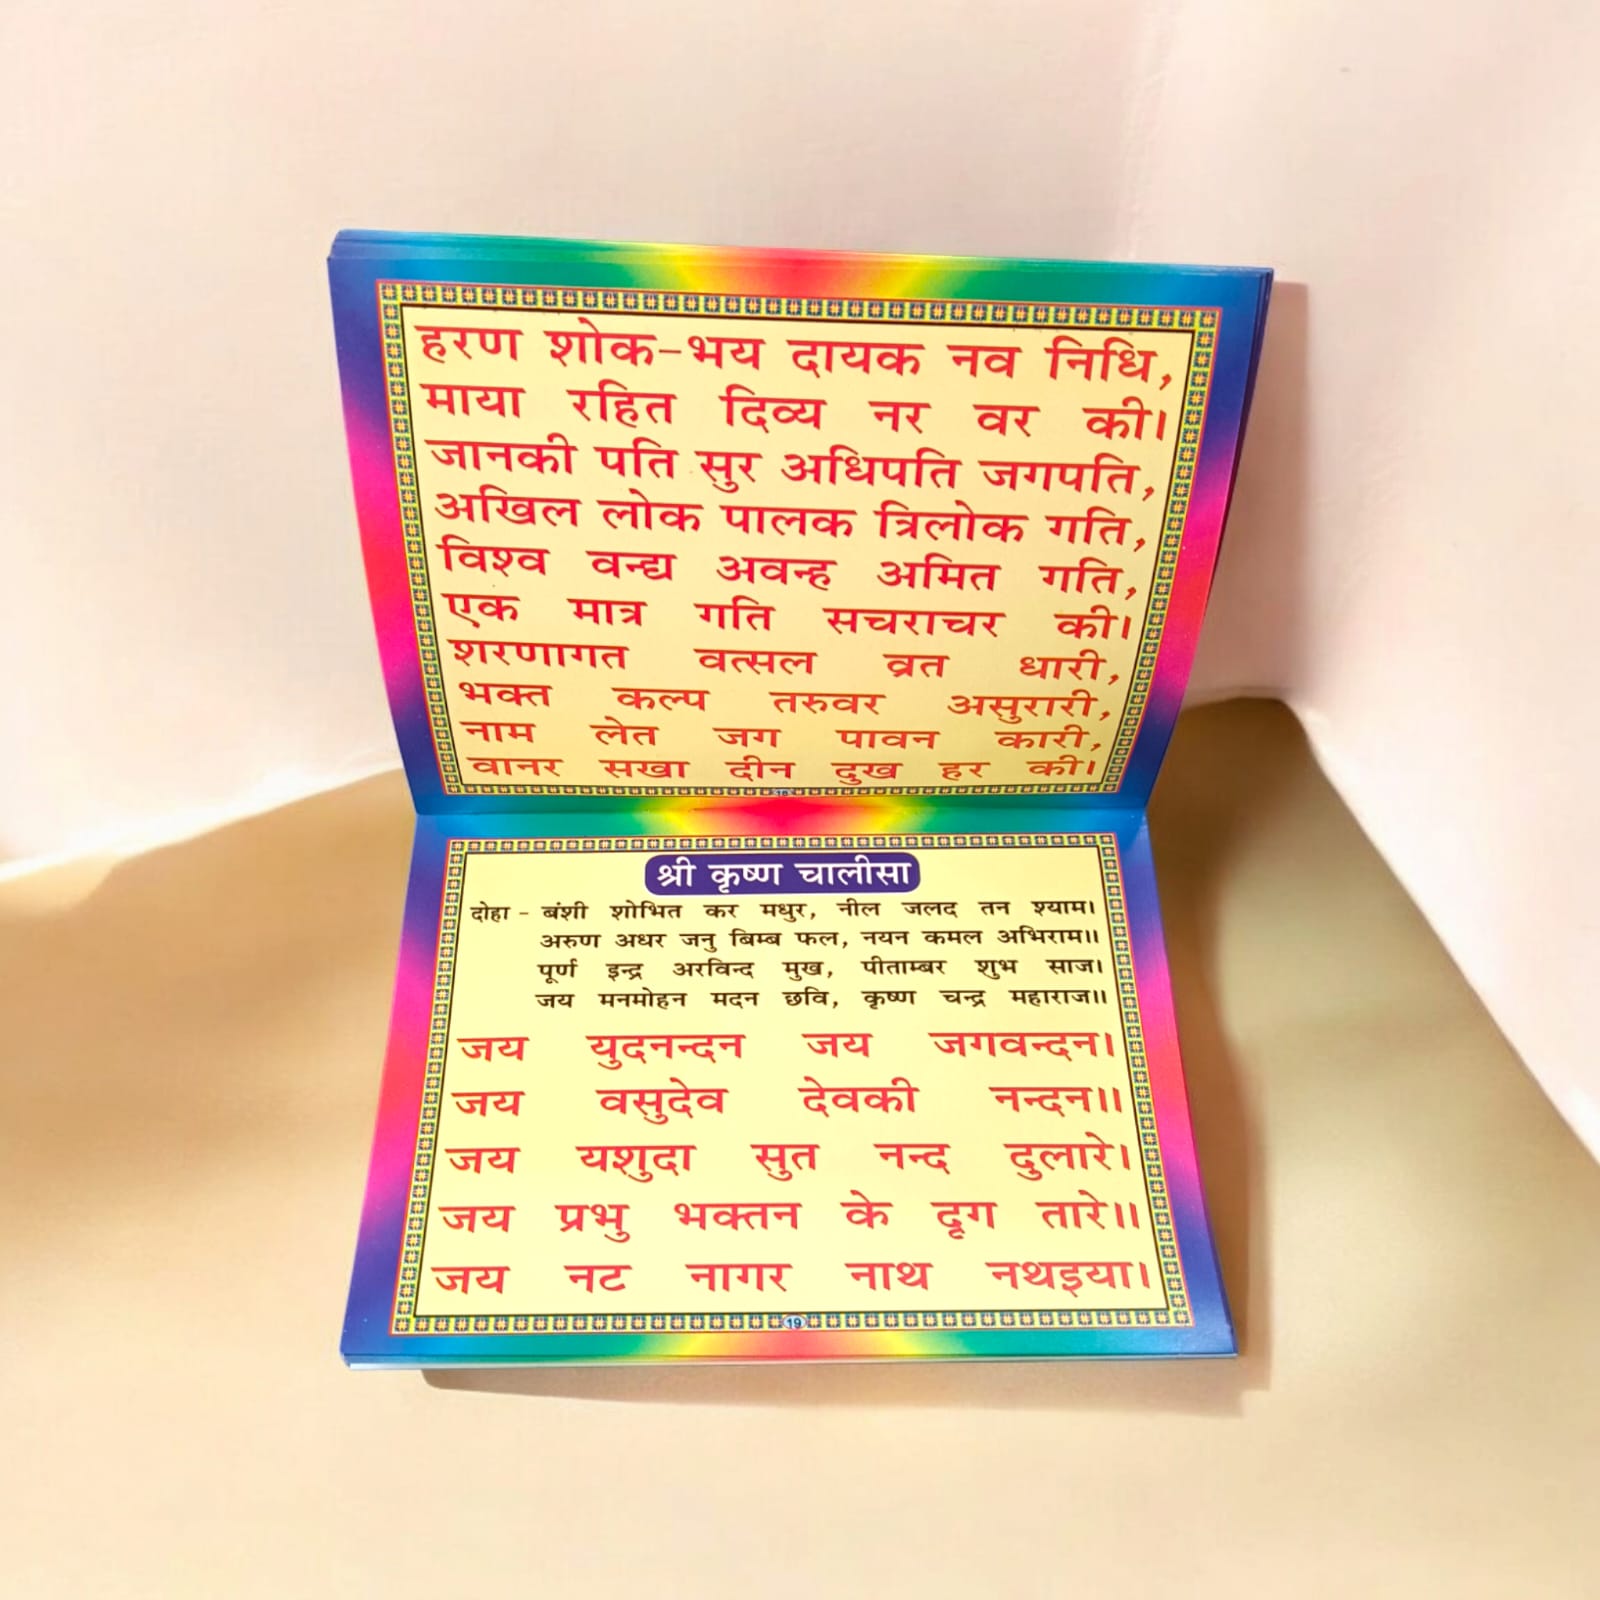 हरण शोक-भय दायक नव निधि,
माया रहित दिव्य नर वर की।
जानकी पति सुर अधिपति जगपति,
अखिल लोक पालक त्रिलोक गति,
विश्व वन्द्य अवन्ह अमित गति,
एक मात्र गति सचराचर की।
शरणागत वत्सल व्रत धारी,
भक्त कल्प तरुवर असुरारी,
नाम लेत जग पावन कारी,
वानर सखा दीन दुख हर की।
18
श्री कृष्ण चालीसा
दोहा - बंशी शोभित कर मधुर, नील जलद तन श्याम।
अरुण अधर जनु बिम्ब फल, नयन कमल अभिराम॥
पूर्ण इन्द्र अरविन्द मुख, पीताम्बर शुभ साज।
जय मनमोहन मदन छवि, कृष्ण चन्द्र महाराज॥
जय युदनन्दन जय जगवन्दन।
जय वसुदेव देवकी नन्दन॥
जय यशुदा सुत नन्द दुलारे।
जय प्रभु भक्तन के दृग तारे॥
जय नट नागर नाथ नथइया।
19